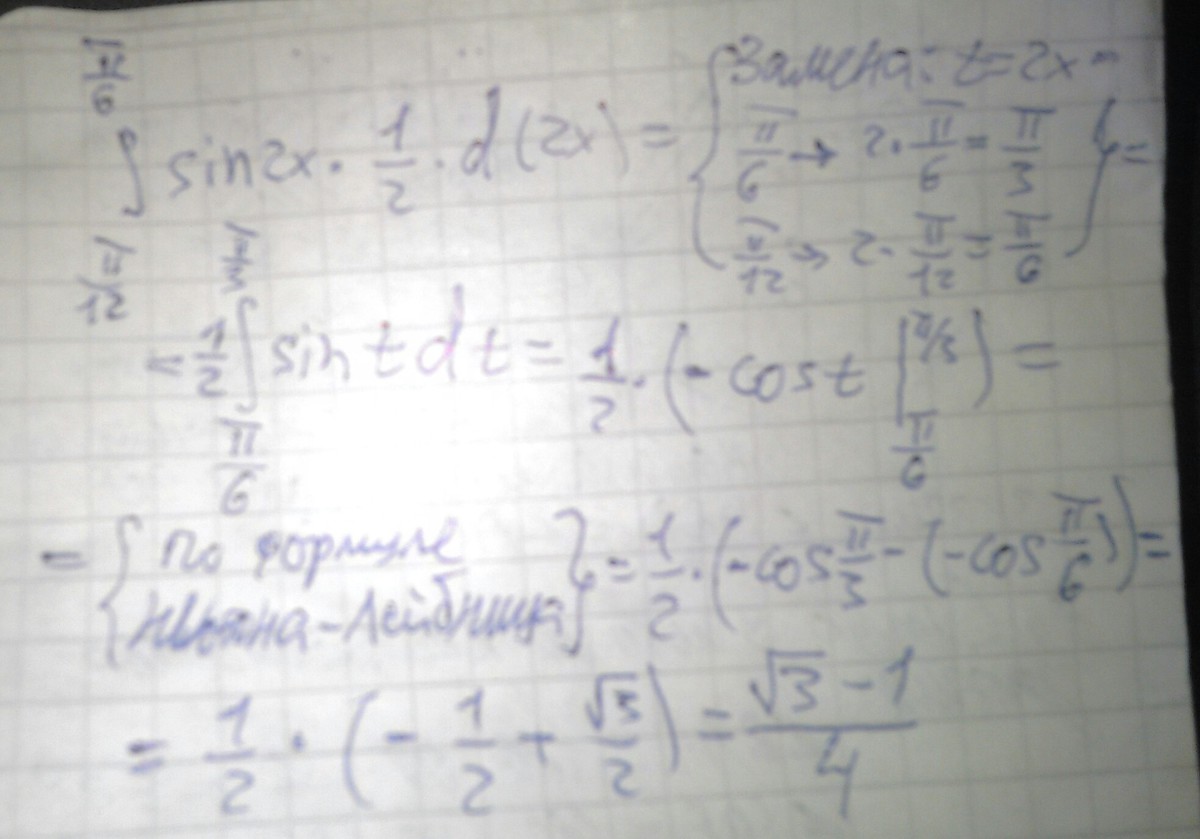 ∫_{π/12}^{π/6} sin2x · 1/2 · d(2x) = { Замена: t=2x
π/6 → 2·π/6 = π/3
π/12 → 2·π/12 = π/6 } =
= 1/2 ∫_{π/6}^{π/3} sin t d t = 1/2 · (-cos t |_{π/6}^{π/3}) =
= { по формуле
Ньютона-Лейбница } = 1/2 · (-cos π/3 - (-cos π/6)) =
= 1/2 · (- 1/2 + √3/2) = (√3 - 1)/4